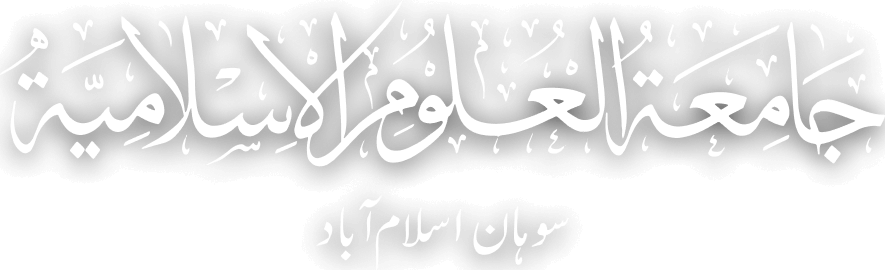 جَامِعَةُ الْعُلُوْمِ الْاِسْلَامِيَّةُ
سوہان اسلام آباد